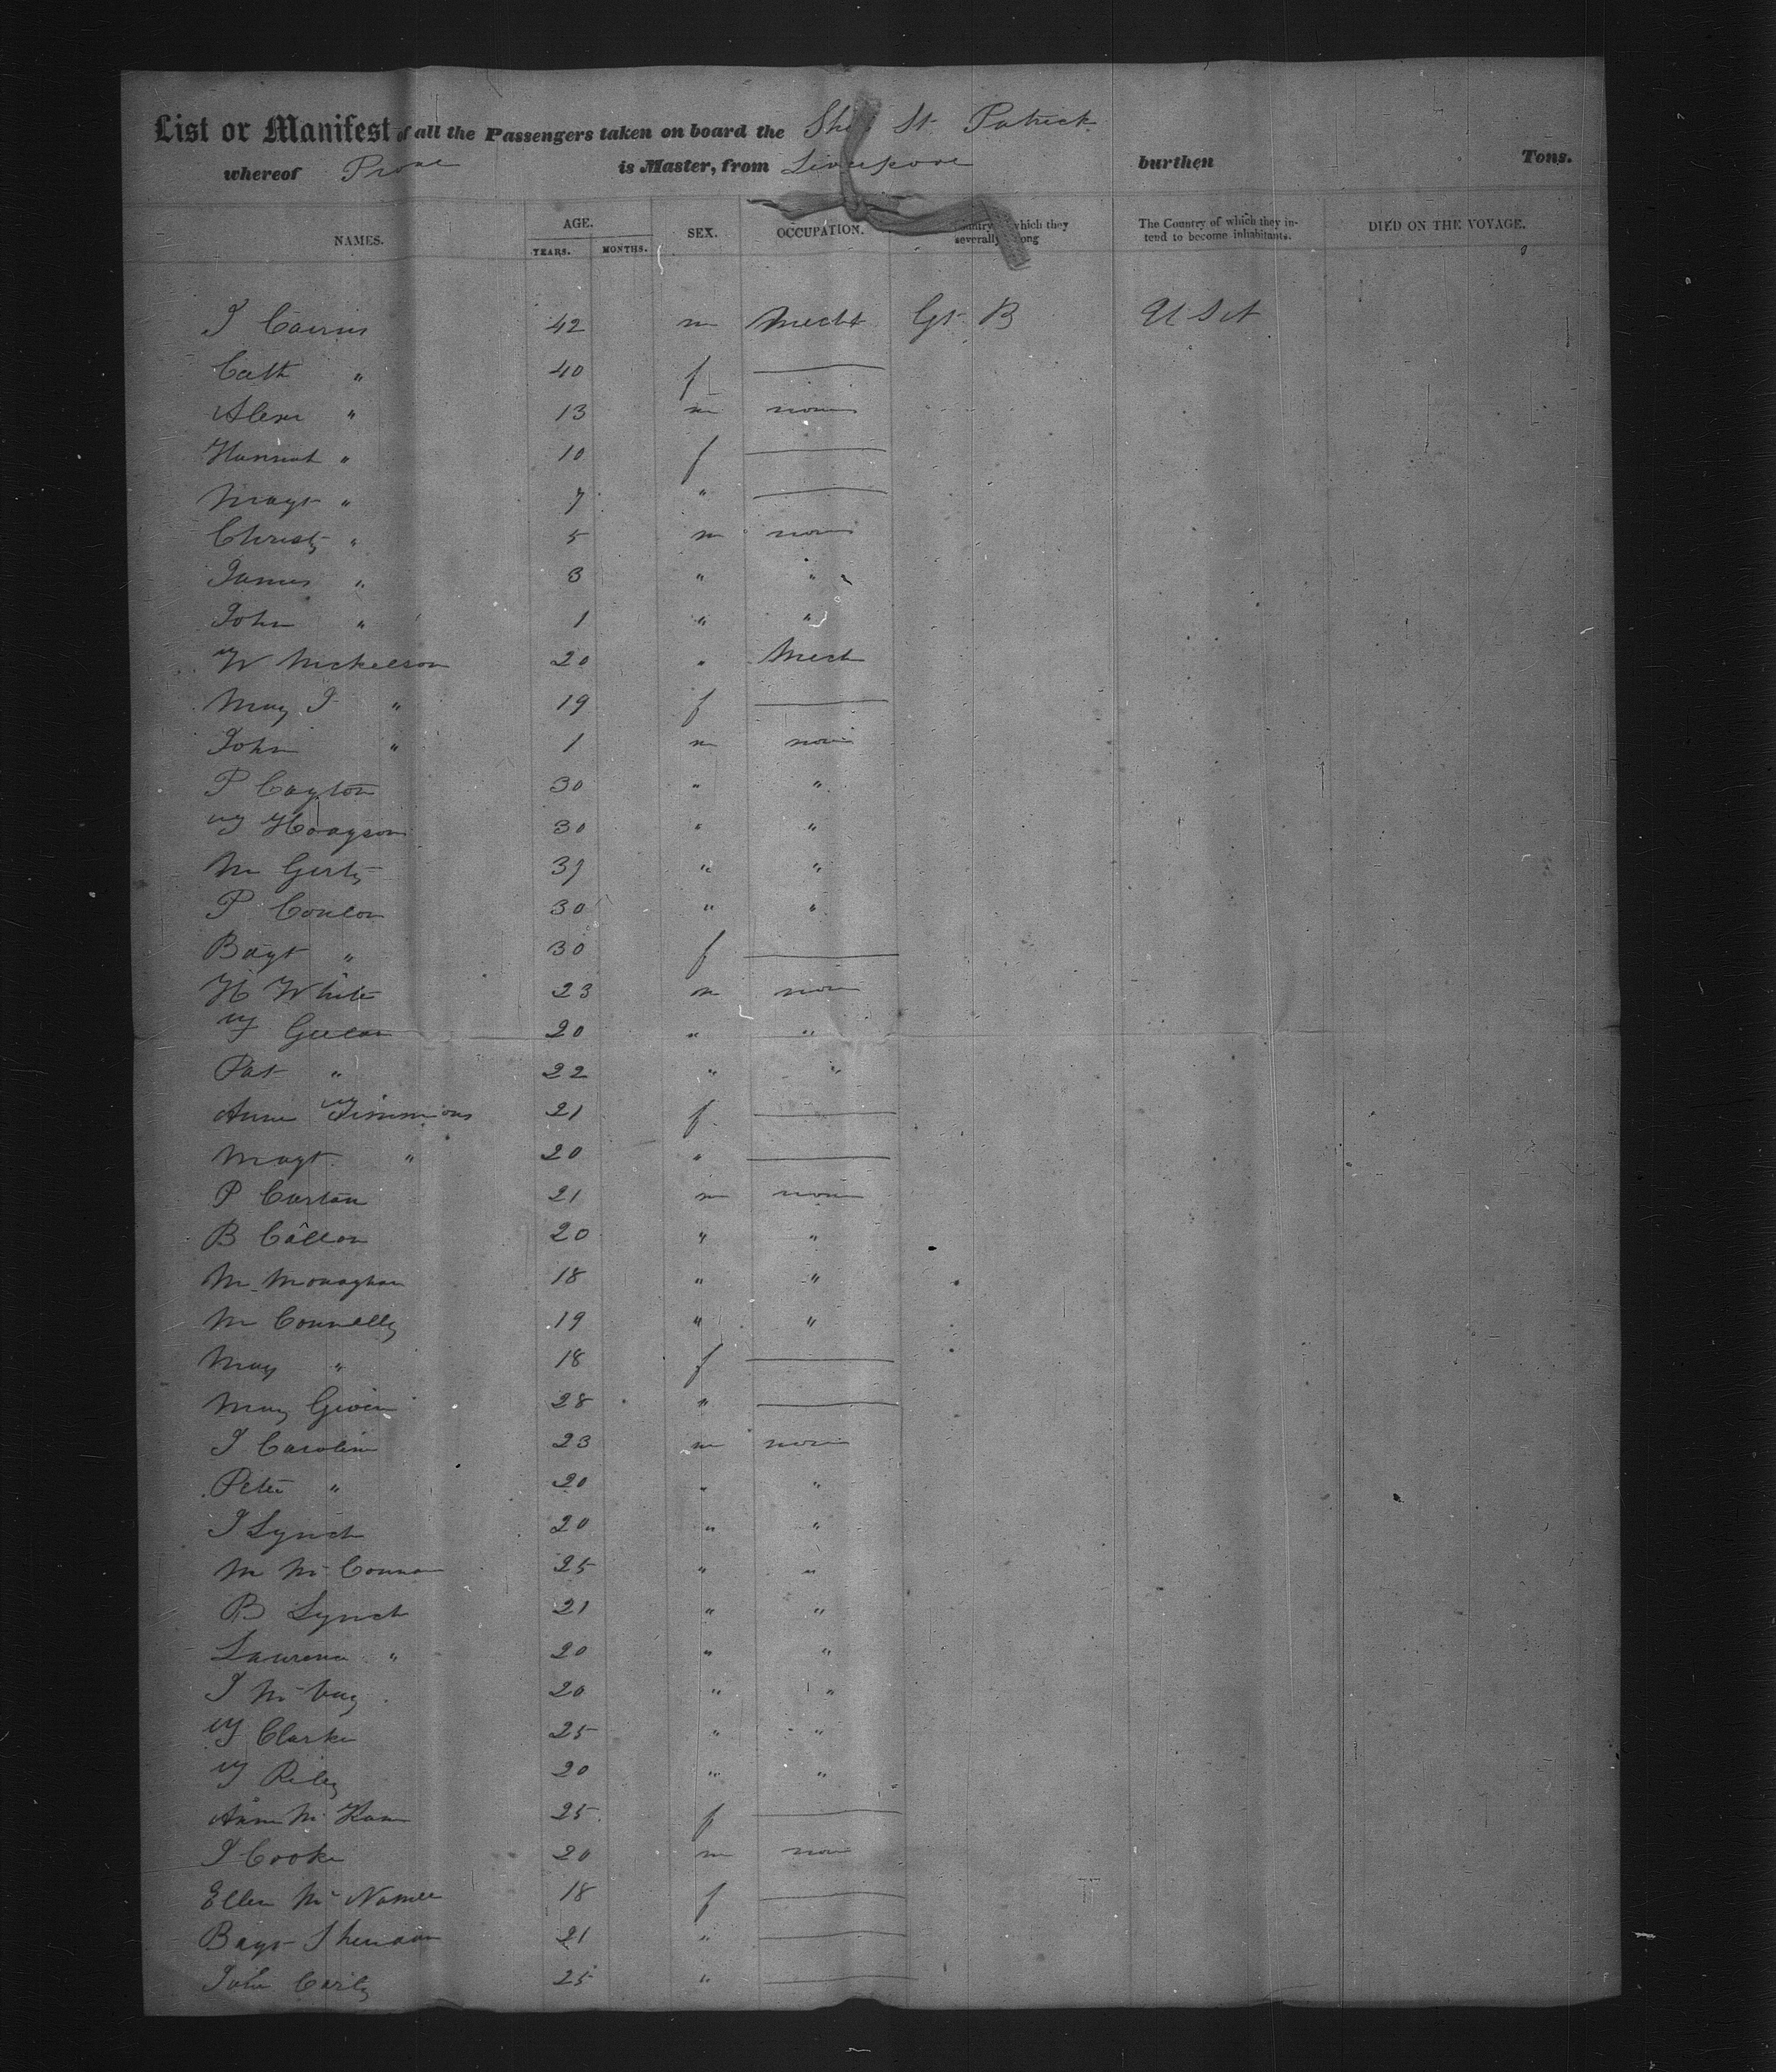 List or Manifest of all the Passengers taken on board the Ship St Patrick
whereof is Master, from Liverpool burthen Tons.
NAMES. AGE. YEARS. MONTHS. SEX. OCCUPATION. Country which they severally The Country of which they in-tend to become inhabitants. DIED ON THE VOYAGE.
J Cairns 42 m Mecht Gt B U St
Cath " 40 f
Alexr " 13 m none
Hannah " 10 f
Magt " 7 "
Christy " 5 m none
James " 3 " "
John " 1 " "
W Nickelson 20 " Mech
Mary J " 19 f
John " 1 m none
P Cayton 30 " "
Hodgson 30 " "
M Gerty 37 " "
P Conlon 30 " "
Bdgt " 30 f
H White 23 m none
20 " "
Pat " 22 " "
Anne Timmons 21 f
Magt " 20 "
P Curtan 21 m none
B Callon 20 " "
M Monaghan 18 " "
M Connelly 19 " "
Mary " 18 f
Mary 28 "
J Carolin 23 m none
Peter " 20 " "
J Lynch 20 " "
M McConnon 25 " "
B Lynch 21 " "
Laurence " 20 " "
J 20 " "
Clarke 25 " "
Riley 20 " "
Anne McKone 25 f
J Cooke 20 m none
Ellen McNamee 18 f
Bdgt Sheridan 21 "
John 25 "